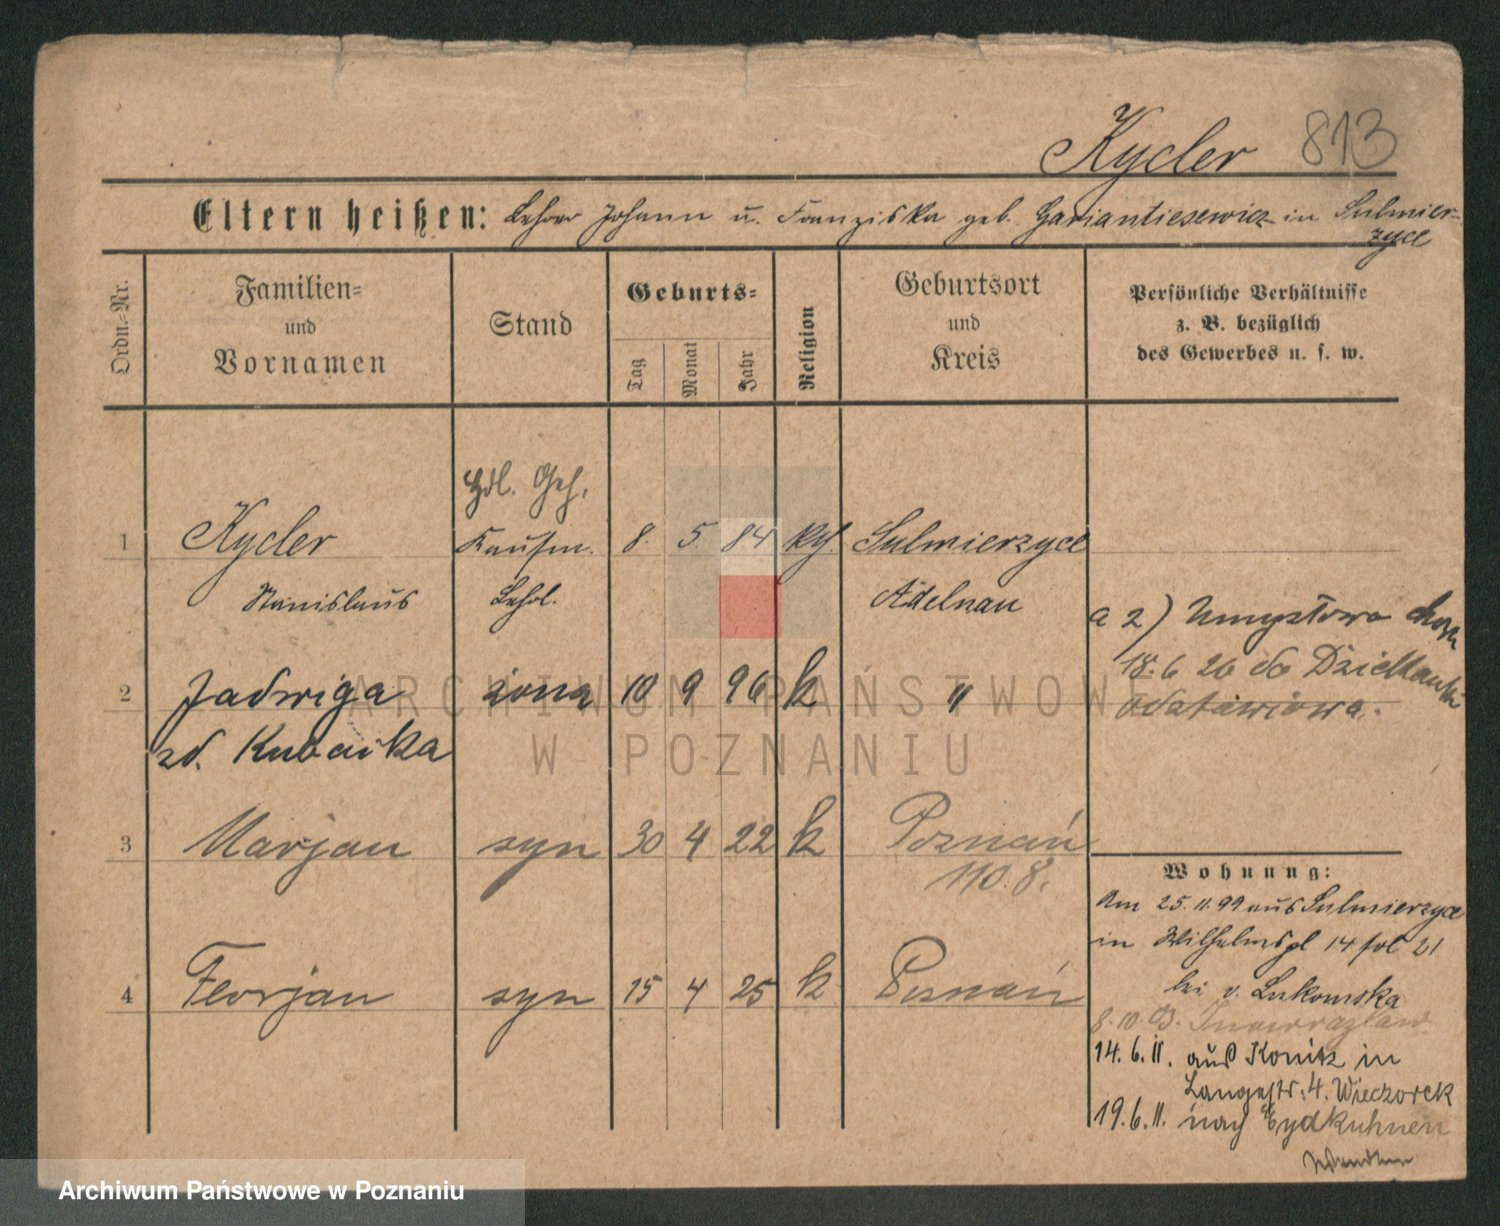 Kycler 813
Eltern heißen: Lehrer Johann u. Franziska geb. Gariantiesewicz in Sulmier-
zyce
Ordn.-Nr.
Familien-
und
Vornamen
Stand
Geburts-
Tag
Monat
Jahr
Religion
Geburtsort
und
Kreis
Persönliche Verhältnisse
z. B. bezüglich
des Gewerbes u. s. w.
Hdl. Geh.
1 Kycler Kaufm. 8. 5 84 kth. Sulmierzyce
Stanislaus Lehrl. Adelnau
a 2) Umysłowo chora
18.6 26 do Dziekanki
odstawiona.
2 Jadwiga żona 10 9 96 k "
zd. Kubacka
3 Marjan syn 30 4 22 k Poznań
110.8.
4 Florjan syn 15 4 25 k Poznań
Wohnung:
Am 25.11.99 aus Sulmierzyce
in Wilhelmspl 14 fol 21
bei v. Lukomska
8.10.03. Inowrazlaw
14.6.11. aus Konitz in
Langestr. 4. Wieczorek
19.6.11. nach Eydkuhnen
ARCHIWUM PAŃSTWOWE
W POZNANIU
Archiwum Państwowe w Poznaniu